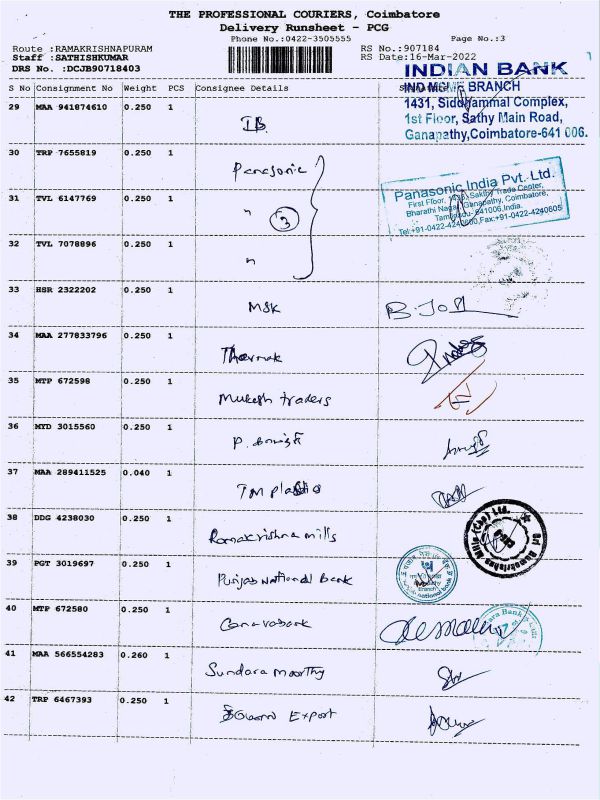 THE PROFESSIONAL COURIERS, Coimbatore
Delivery Runsheet - PCG
Phone No.:0422-3505555
Page No.:3
Route :RAMAKRISHNAPURAM
RS No.:907184
Staff :SATHISHKUMAR
RS Date:16-Mar-2022
DRS No. :DCJB90718403
INDIAN BANK
S No Consignment No Weight PCS Consignee Details
BRANCH
1431, Siddhammal Complex,
1st Floor, Sathy Main Road,
Ganapathy,Coimbatore-641 006.
29 MAA 941874610 0.250 1
IB
30 TRP 7655819 0.250 1
Panasonic
Panasonic India Pvt. Ltd.
First Floor, Sakthy Trade Center,
Bharathi Nagar, Ganapathy, Coimbatore,
Tamilnadu - 641006,India.
Fax:+91-0422-4240605
31 TVL 6147769 0.250 1
" 3
32 TVL 7078896 0.250 1
"
33 HSR 2322202 0.250 1
MSK
34 MAA 277833796 0.250 1
35 MTP 672598 0.250 1
Mukesh traders
36 MYD 3015560 0.250 1
P.
37 MAA 289411525 0.040 1
TM
38 DDG 4238030 0.250 1
Ramakrishna mills
Sri Ramakrishna Mills (Cbe) Ltd.
39 PGT 3019697 0.250 1
Punjab National Bank
national bank
40 MTP 672580 0.250 1
Canarabank
41 MAA 566554283 0.260 1
Sundara moorthy
42 TRP 6467393 0.250 1
Export